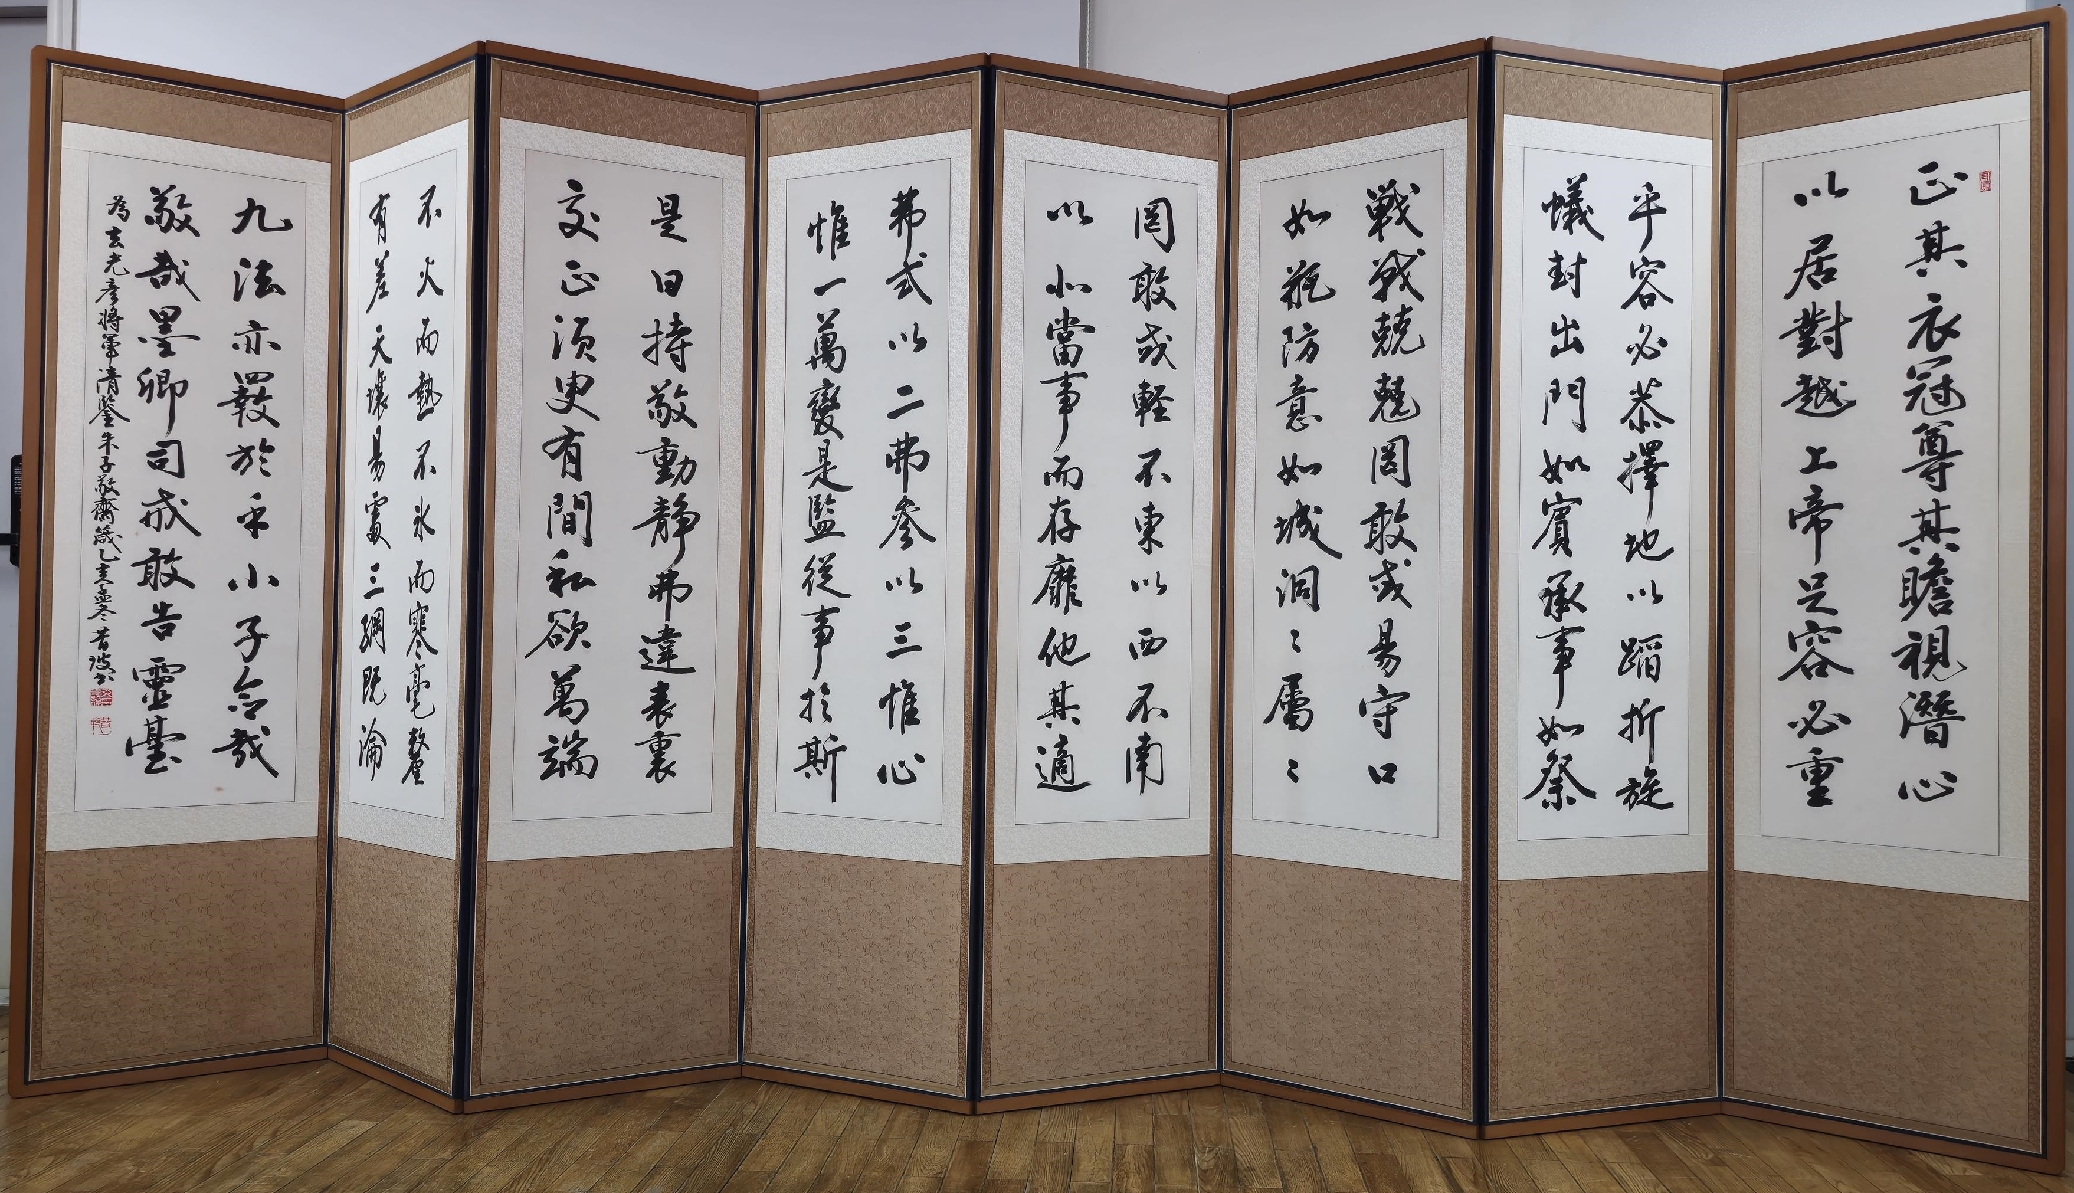 正其衣冠尊其瞻視潛心
以居對越上帝足容必重
手容必恭擇地以蹈折旋
蟻封出門如賓承事如祭
戰戰兢兢罔敢或易守口
如瓶防意如城洞〻屬〻
罔敢或輕不東以西不南
以北當事而存靡他其適
弗貳以二弗參以三惟心
惟一萬變是監從事於斯
是曰持敬動靜弗違表裏
交正須臾有間私欲萬端
不火而熱不氷而寒毫釐
有差天壤易處三綱既淪
九法亦斁於乎小子念哉
敬哉墨卿司戒敢告靈臺
為玄光彦將軍清鑒朱子敬齋箴乙亥孟冬